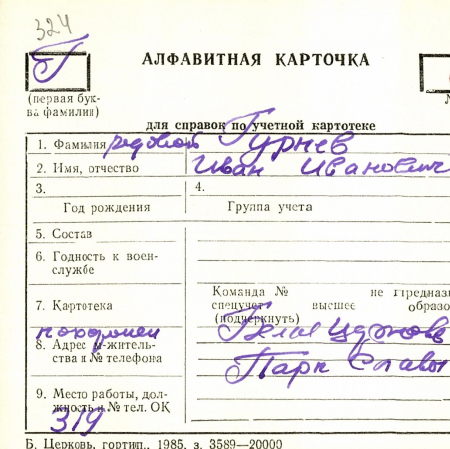 324
Г
АЛФАВИТНАЯ КАРТОЧКА
(первая бук-
ва фамилии)
для справок по учетной картотеке
1. Фамилия рядовой Гурнев
2. Имя, отчество Иван Иванович
3. 4.
Год рождения Группа учета
5. Состав
6. Годность к воен-
службе
Команда № не Предназ
7. Картотека спецучет высшее образо
(подчеркнуть)
похоронен Белая Церковь
8. Адрес м-житель-
ства и № телефона Парк Славы
9. Место работы, дол-
жность и № тел. ОК
319
Б. Церковь, гортип., 1985, з. 3589—20000